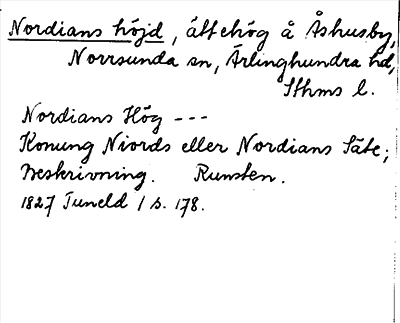 Nordians höjd, ättehög å Åshusby,
Norrsunda sn, Ärlinghundra hd,
Sthms l.
Nordians Hög ---
Konung Niords eller Nordians Säte;
Beskrivning. Runsten.
1827 Tuneld 1 s. 178.